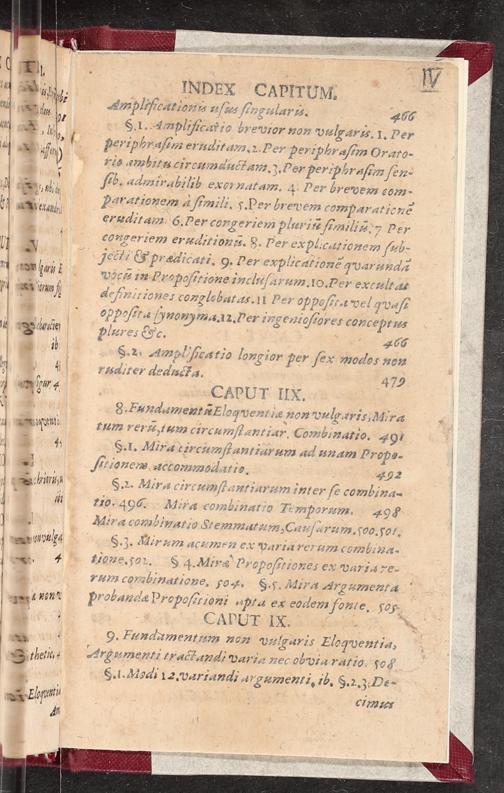 IV
INDEX CAPITUM.
Amplificationis usus singularis. 466
§.1. Amplificatio brevior non vulgaris. 1. Per
periphrasim eruditam. 2. Per periphrasim Orato-
rio ambitu circumductam. 3. Per periphrasim sen-
sib. admirabilib exornatam. 4. Per brevem com-
parationem à simili. 5. Per brevem comparationē
eruditam 6. Per congeriem pluriū similiū. 7 Per
congeriem eruditionū. 8. Per explicationem sub-
jecti & prædicati. 9. Per explicationē quarundā
vocū in Propositione inclusarum. 10. Per excultas
definitiones conglobatas. 11 Per opposita vel quasi
opposita synonyma. 12. Per ingeniosiores conceptus
plures &c. 466
§.2. Amplificatio longior per sex modos non
ruditer deducta. 479
CAPUT IIX.
8. Fundamentū Eloquentiæ non vulgaris, Mira
tum rerū, tum circumstantiar. Combinatio. 491
§.1. Mira circumstantiarum ad unam Propo-
sitionem accommodatio. 492
§.2. Mira circumstantiarum inter se combina-
tio. 496. Mira combinatio Temporum. 498
Mira combinatio Stemmatum, Causarum. 500. 501.
§.3. Mirum acumen ex varia rerum combina-
tione. 502. § 4. Miræ Propositiones ex varia re-
rum combinatione. 504. §.5. Mira Argumenta
probandæ Propositioni apta ex eodem fonte. 505
CAPUT IX.
9. Fundamentum non vulgaris Eloquentiæ,
Argumenti tractandi varia nec obvia ratio. 508
§.1. Modi 12. variandi argumenti. ib. §.2.3. De-
cimus